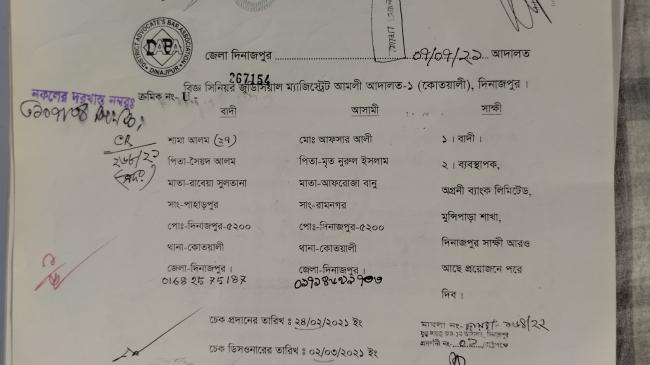 DISTRICT ADVOCATE'S BAR ASSOCIATION
DINAJPUR
জেলা দিনাজপুর আদালত
267154
বিজ্ঞ সিনিয়র জুডিসিয়াল ম্যাজিস্ট্রেট আমলী আদালত-১ (কোতয়ালী), দিনাজপুর।
নকলের দরখাস্ত নম্বরঃ
ক্রমিক নং-
বাদী আসামী সাক্ষী
CR
শামা আলম (২৭) মোঃ আফসার আলী ১। বাদী।
পিতা-সৈয়দ আলম পিতা-মৃত নুরুল ইসলাম ২। ব্যবস্থাপক,
মাতা-রাবেয়া সুলতানা মাতা-আফরোজা বানু অগ্রনী ব্যাংক লিমিটেড,
সাং-পাহাড়পুর সাং-রামনগর মুন্সিপাড়া শাখা,
পোঃ-দিনাজপুর-৫২০০ পোঃ-দিনাজপুর-৫২০০ দিনাজপুর সাক্ষী আরও
থানা-কোতয়ালী থানা-কোতয়ালী আছে প্রয়োজনে পরে
জেলা-দিনাজপুর। জেলা-দিনাজপুর। দিব।
01682575187
চেক প্রদানের তারিখ ঃ ২৪/০২/২০২১ ইং
মামলা নং-
চেক ডিসওনারের তারিখ ঃ ০২/০৩/২০২১ ইং